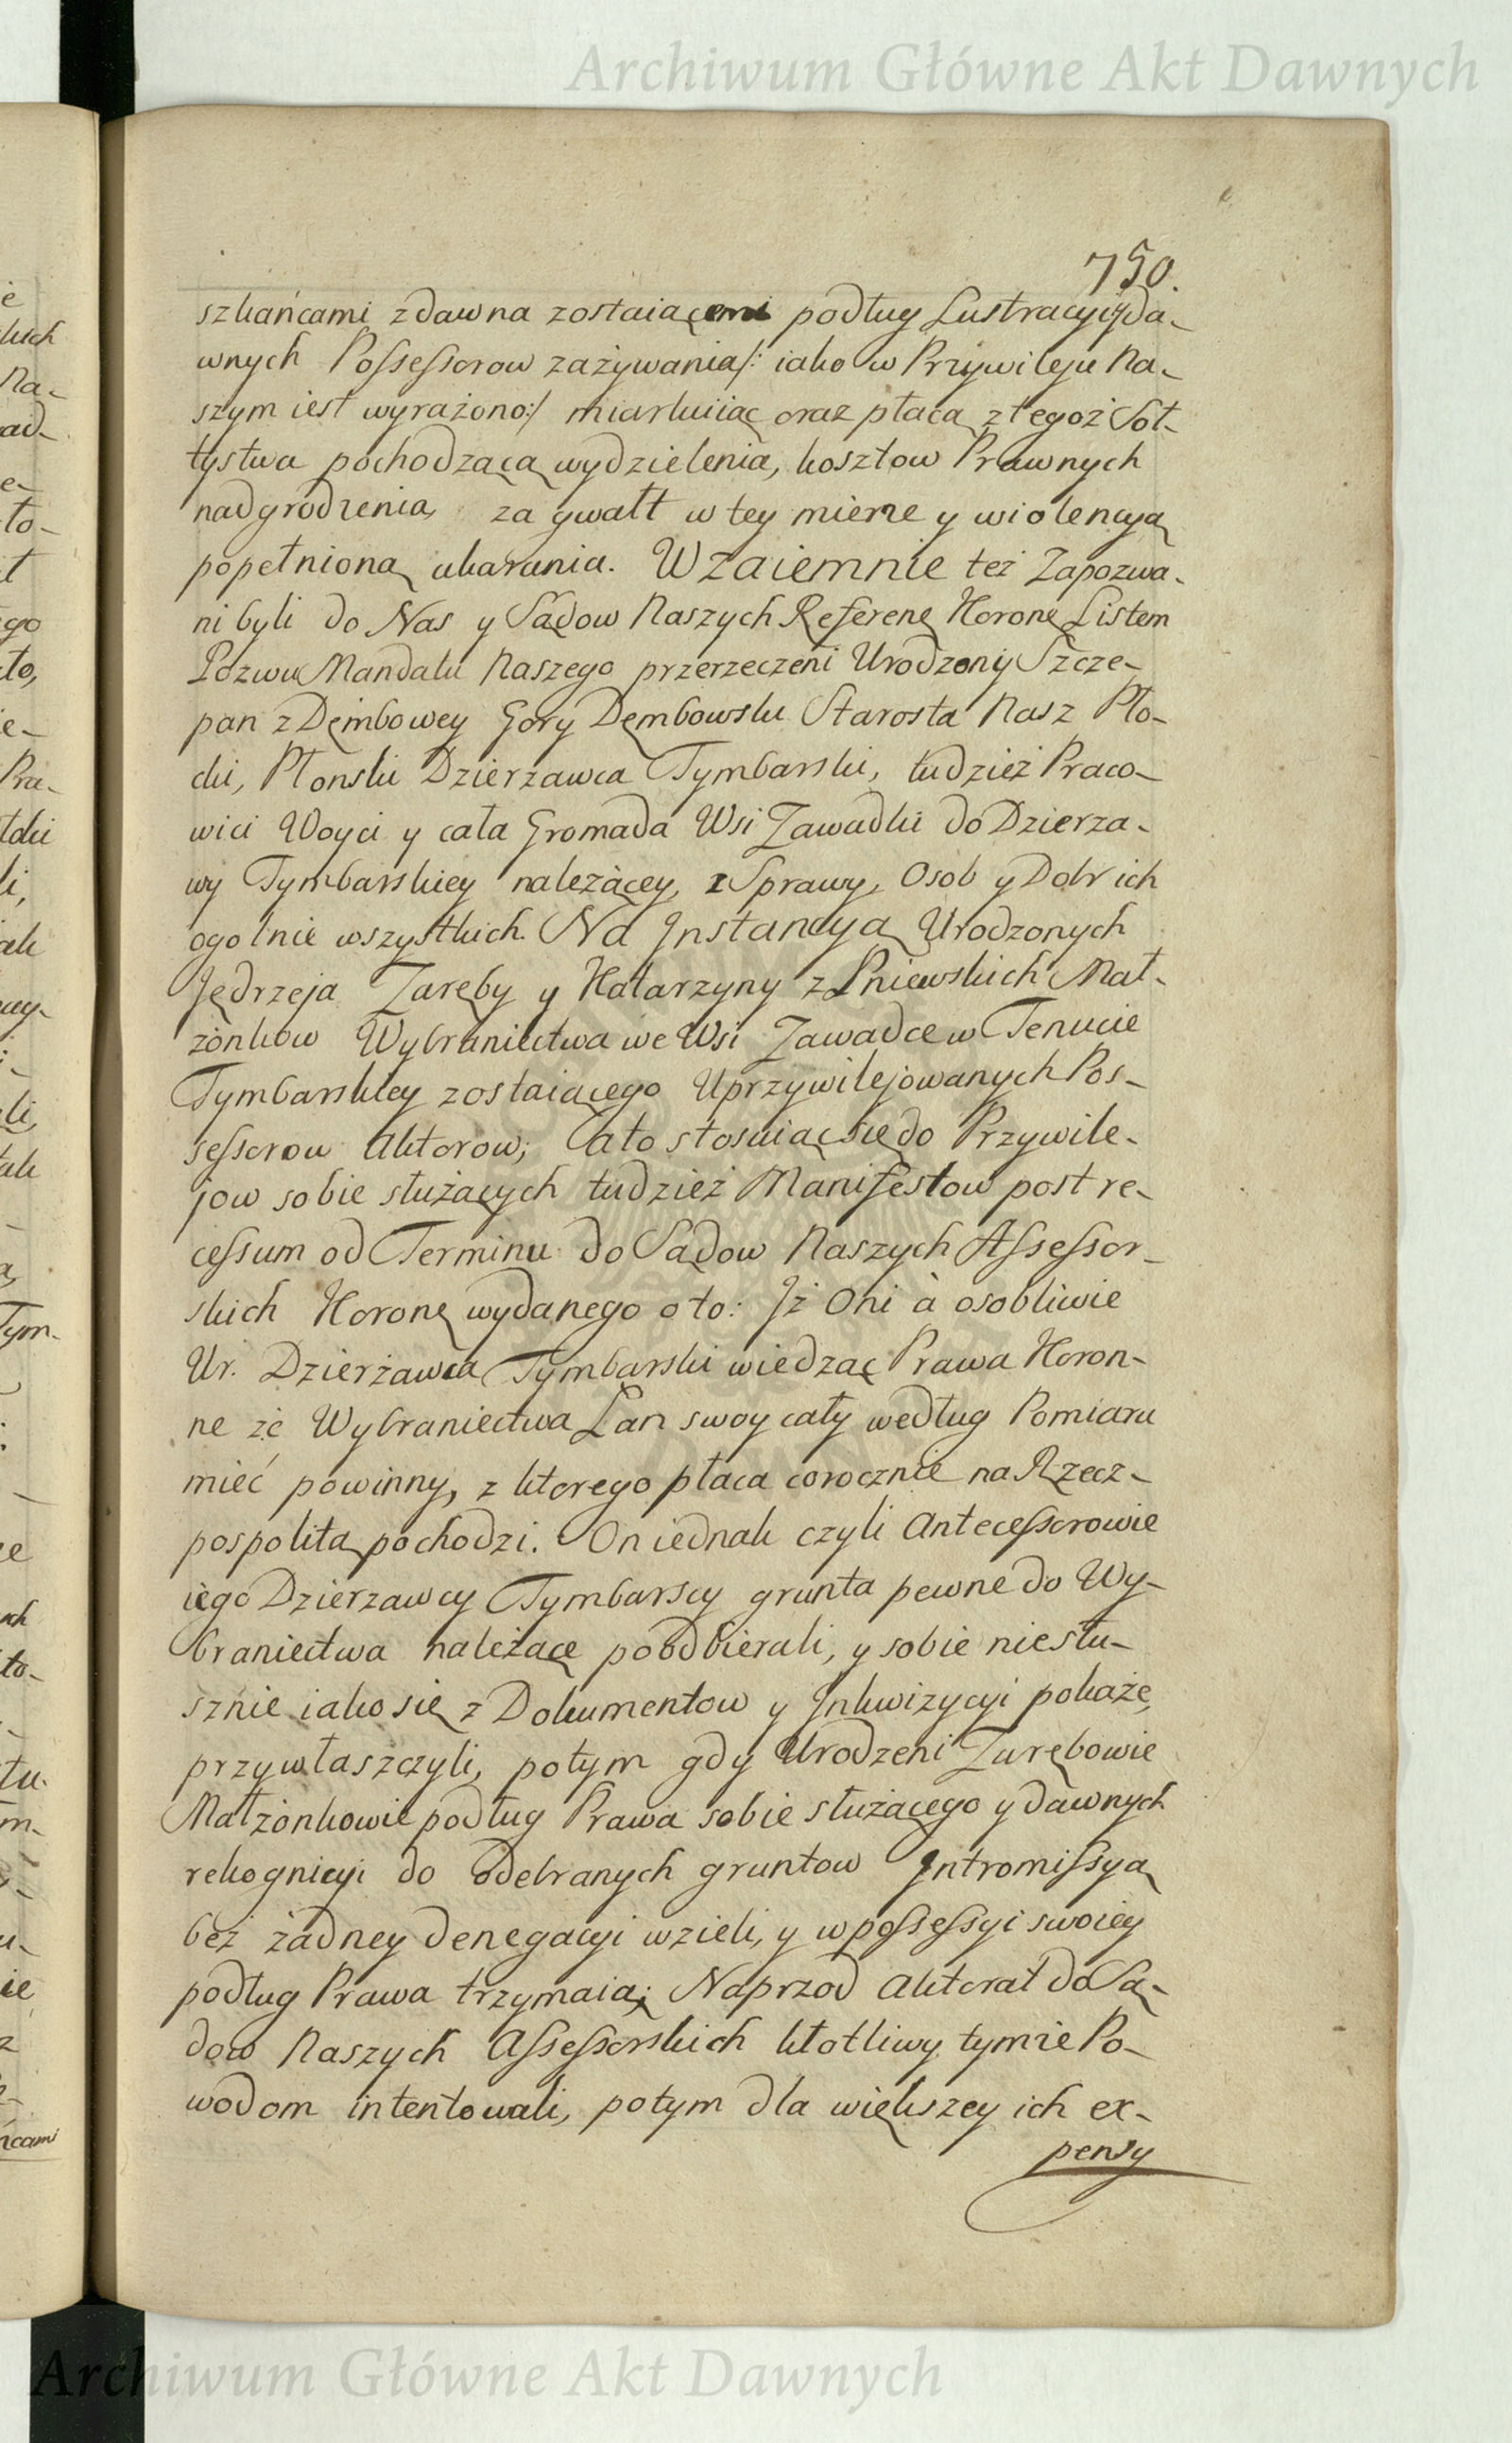 Archiwum Główne Akt Dawnych
750.
szkańcami zdawna zostaiącemi podług Lustracyi y da-
wnych Possessorow zażywania/: iako w Przywileju Na-
szym iest wyrażono:/ miarkuiąc oraz płacą z tegoż Soł-
tystwa pochodzącą wydzielenia, kosztow Prawnych
nadgrodzenia, za gwałt w tey mierze y wiolencyą
popełnioną ukarania. Wzaiemnie też Zapozwa-
ni byli do Nas y Sądow Naszych Referenę Koronę Listem
Pozwu Mandatu Naszego przerzeczeni Urodzony Szcze-
pan z Dęmbowey Gory Dęmbowski Starosta Nasz Pło-
cki, Płonski Dzierzawca Tymbarski, tudzież Praco-
wici Woyci y cała Gromada Wsi Zawadki do Dzierza-
wy Tymbarskiey należącey, z Sprawy, Osob y Dobr ich
ogolnie wszystkich. Na Jnstancyą Urodzonych
Jędrzeja Zaręby y Katarzyny z Pniewskich Mał-
żonkow Wybraniectwa we Wsi Zawadce w Tenucie
Tymbarskiey zostaiącego Uprzywilejowanych Pos-
sessorow Aktorow; Ato stosuiąc się do Przywile-
jow sobie służących tudzież Manifestow post re-
cessum od Terminu do Sądow Naszych Assessor-
skich Koronę wydanego oto: Jż Oni à osobliwie
Ur. Dzierżawca Tymbarski wiedząc Prawa Koron-
ne że Wybraniectwa Łan swoy cały według Pomiaru
mieć powinny, z ktorego płaca corocznie na Rzecz-
pospolitą pochodzi. On iednak czyli Antecessorowie
iego Dzierzawcy Tymbarscy grunta pewne do Wy-
braniectwa należące poodbierali, y sobie niesłu-
sznie iako się z Dokumentow y Jnkwizycyi pokaże,
przywłaszczyli, potym gdy Urodzeni Zarębowie
Małżonkowie podług Prawa sobie służącego y dawnych
rekognicyi do odebranych gruntow Jntromissyą
bez żadney denegacyi wzieli, y w possessyi swoiey
podług Prawa trzymaią; Naprzod Aktorat do Są-
dow Naszych Assessorskich kłotliwy tymże Po-
wodom intentowali, potym dla większey ich ex-
pensy
Archiwum Główne Akt Dawnych